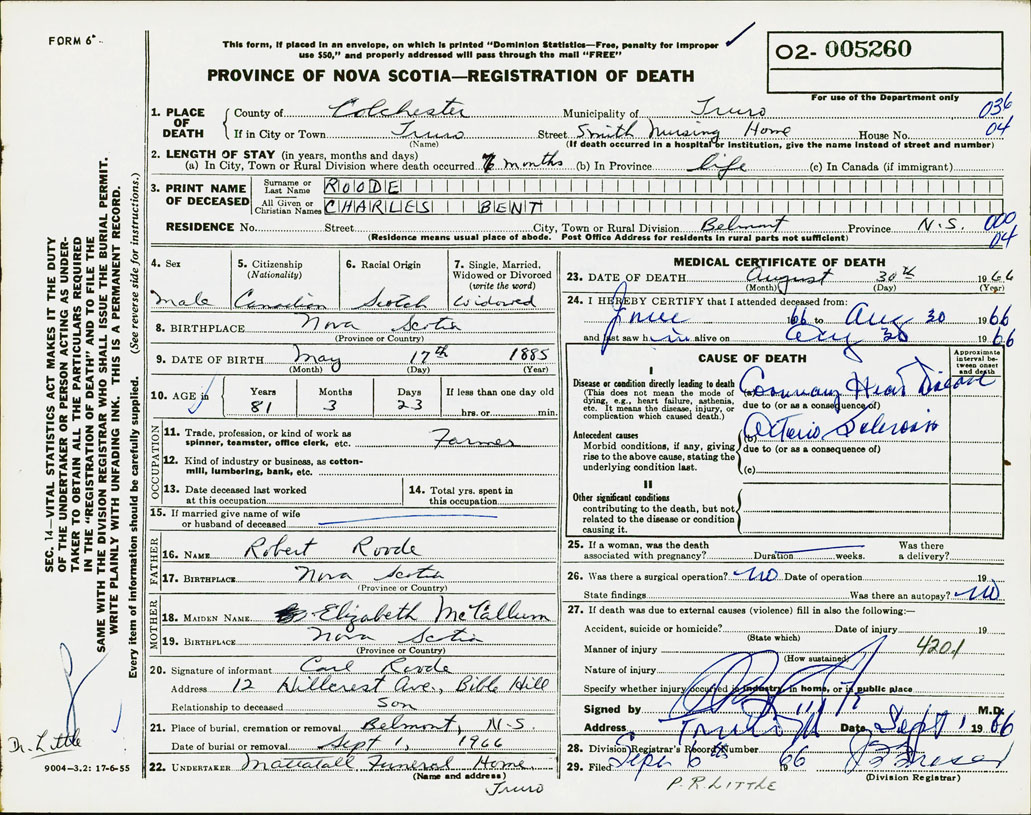 FORM 6
This form, if placed in an envelope, on which is printed "Dominion Statistics—Free, penalty for improper
use $50," and properly addressed will pass through the mail "FREE"
PROVINCE OF NOVA SCOTIA—REGISTRATION OF DEATH
02- 005260
For use of the Department only
1. PLACE OF DEATH
County of Colchester Municipality of Truro 036
If in City or Town Truro Street Smith Nursing Home House No. 04
(Name) (If death occurred in a hospital or institution, give the name instead of street and number)
2. LENGTH OF STAY (in years, months and days)
(a) In City, Town or Rural Division where death occurred 7 months (b) In Province life (c) In Canada (if immigrant)
3. PRINT NAME OF DECEASED
Surname or Last Name ROODE
All Given or Christian Names CHARLES BENT
RESIDENCE No. Street City, Town or Rural Division Belmont Province N.S. 000
04
(Residence means usual place of abode. Post Office Address for residents in rural parts not sufficient)
4. Sex
Male
5. Citizenship
(Nationality)
Canadian
6. Racial Origin
Scotch
7. Single, Married,
Widowed or Divorced
(write the word)
Widowed
8. BIRTHPLACE Nova Scotia
(Province or Country)
9. DATE OF BIRTH May 17th 1885
(Month) (Day) (Year)
10. AGE in
Years Months Days If less than one day old
81 3 23 hrs. or min.
OCCUPATION
11. Trade, profession, or kind of work as
spinner, teamster, office clerk, etc. Farmer
12. Kind of industry or business, as cotton-
mill, lumbering, bank, etc.
13. Date deceased last worked
at this occupation
14. Total yrs. spent in
this occupation
15. If married give name of wife
or husband of deceased
FATHER
16. NAME Robert Roode
17. BIRTHPLACE Nova Scotia
(Province or Country)
MOTHER
18. MAIDEN NAME Elizabeth McCallum
19. BIRTHPLACE Nova Scotia
(Province or Country)
20. Signature of informant Carl Roode
Address 12 Hillcrest Ave., Bible Hill
Relationship to deceased Son
21. Place of burial, cremation or removal Belmont, N.S
Date of burial or removal Sept 1, 1966
22. UNDERTAKER Mattatall Funeral Home,
(Name and address)
Truro
MEDICAL CERTIFICATE OF DEATH
23. DATE OF DEATH August 30th 1966
(Month) (Day) (Year)
24. I HEREBY CERTIFY that I attended deceased from:
June 1966 to Aug 30 1966
and last saw him alive on Aug 30 1966
CAUSE OF DEATH
Approximate
interval be-
tween onset
and death
I
Disease or condition directly leading to death
(This does not mean the mode of
dying, e.g., heart failure, asthenia,
etc. It means the disease, injury, or
complication which caused death.)
(a) Coronary Heart Disease
due to (or as a consequence of)
Antecedent causes
Morbid conditions, if any, giving
rise to the above cause, stating the
underlying condition last.
(b) Arterio Sclerosis
due to (or as a consequence of)
(c)
II
Other significant conditions
contributing to the death, but not
related to the disease or condition
causing it.
25. If a woman, was the death Was there
associated with pregnancy? Duration weeks. a delivery?
26. Was there a surgical operation? NO Date of operation 19
State findings Was there an autopsy? NO
27. If death was due to external causes (violence) fill in also the following:—
Accident, suicide or homicide? Date of injury 19
(State which)
Manner of injury 4201
(How sustained)
Nature of injury
Specify whether injury occurred in industry, in home, or in public place
Signed by M.D.
Address Truro Date Sept 1 1966
28. Division Registrar's Record Number
29. Filed Sept 6th 1966
(Division Registrar)
P.R. LITTLE
SEC. 14—VITAL STATISTICS ACT MAKES IT THE DUTY
OF THE UNDERTAKER OR PERSON ACTING AS UNDER-
TAKER TO OBTAIN ALL THE PARTICULARS REQUIRED
IN THE "REGISTRATION OF DEATH" AND TO FILE THE
SAME WITH THE DIVISION REGISTRAR WHO SHALL ISSUE THE BURIAL PERMIT.
WRITE PLAINLY WITH UNFADING INK. THIS IS A PERMANENT RECORD.
Every item of information should be carefully supplied. (See reverse side for instructions.)
Dr. Little
9004—3.2: 17-6-55